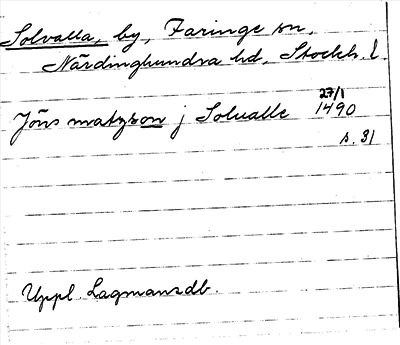 Solvalla, by, Faringe sn,
Närdinghundra hd, Stockh. l.
27/1
Jöns matzson j Solualle 1490
s. 31
Uppl. Lagmansdb.